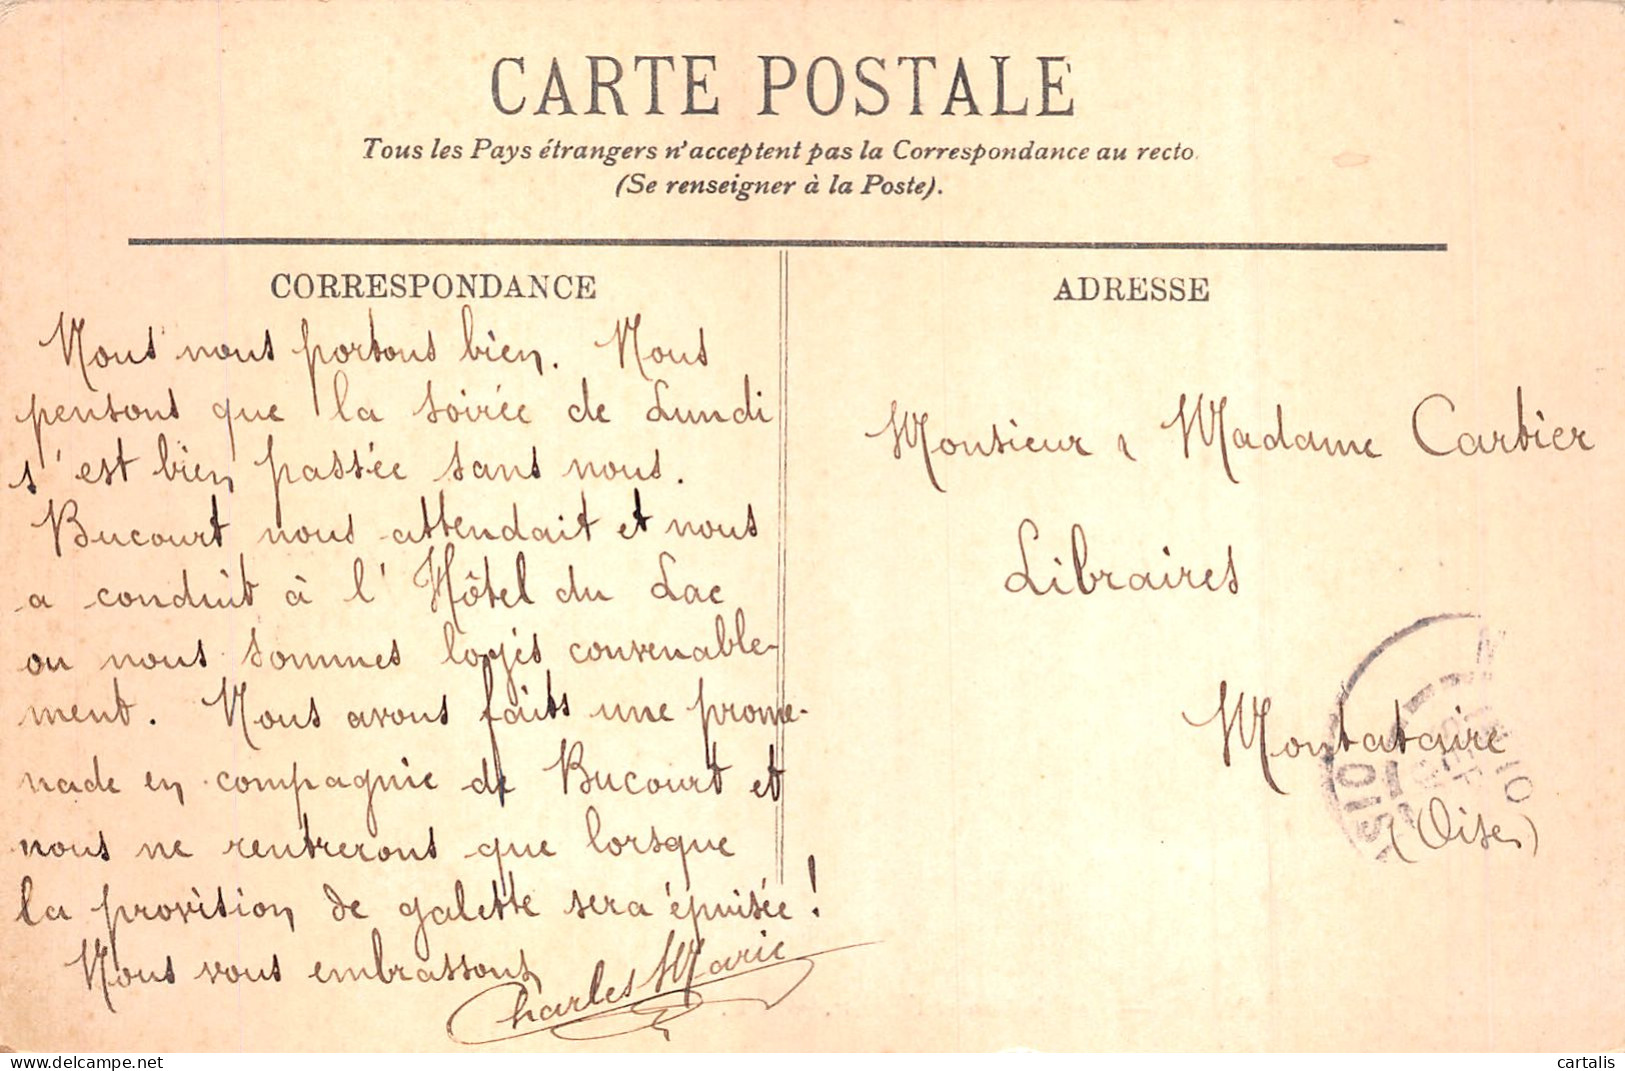 CARTE POSTALE
Tous les Pays étrangers n'acceptent pas la Correspondance au recto
(Se renseigner à la Poste).
CORRESPONDANCE
Nous nous portons bien. Nous
pensons que la soirée de Lundi
s'est bien passée sans nous.
Bucourt nous attendait et nous
a conduit à l'Hôtel du Lac
ou nous sommes logés convenable-
ment. Nous avons faits une prome-
nade en compagnie de Bucourt et
nous ne rentrerons que lorsque
la provision de galette sera épuisée !
Nous vous embrassons
Charles Marie
ADRESSE
Monsieur & Madame Carbier
Libraires
Montataire
(Oise)
cartalis